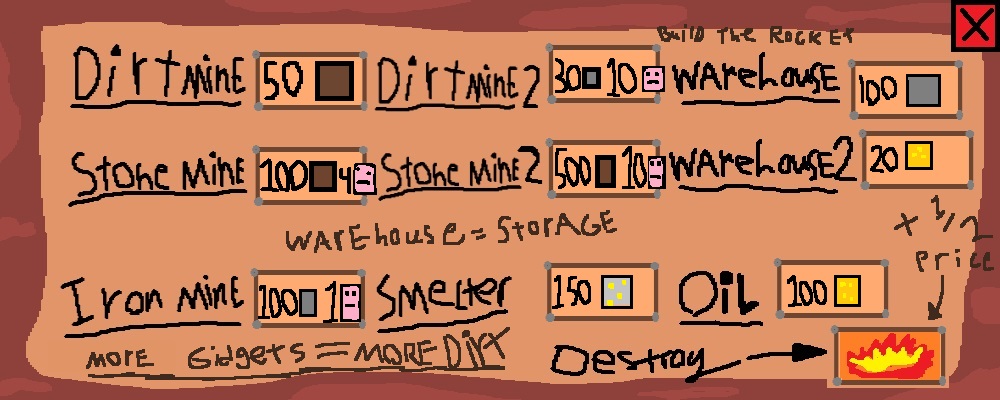 Build The Rocket
Dirt MinE 50 Dirt MinE 2 30 10 WArehouSE 100
Stone MinE 100 4 Stone MinE 2 500 10 WArehouSE 2 20
WArEhouse = StorAGE
+ 1/2 Price
Iron MinE 100 1 SmElter 150 OiL 100
MORE Gidgets = MORE Dirt
Destroy